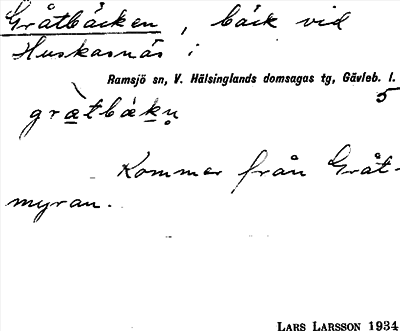 Gråtbäcken, bäck vid
Huskasnäs i
Ramsjö sn, V. Hälsinglands domsagas tg, Gävleb. l.
5
gràtbäkn̥
Kommer från Gråt-
myran.
LARS LARSSON 1934